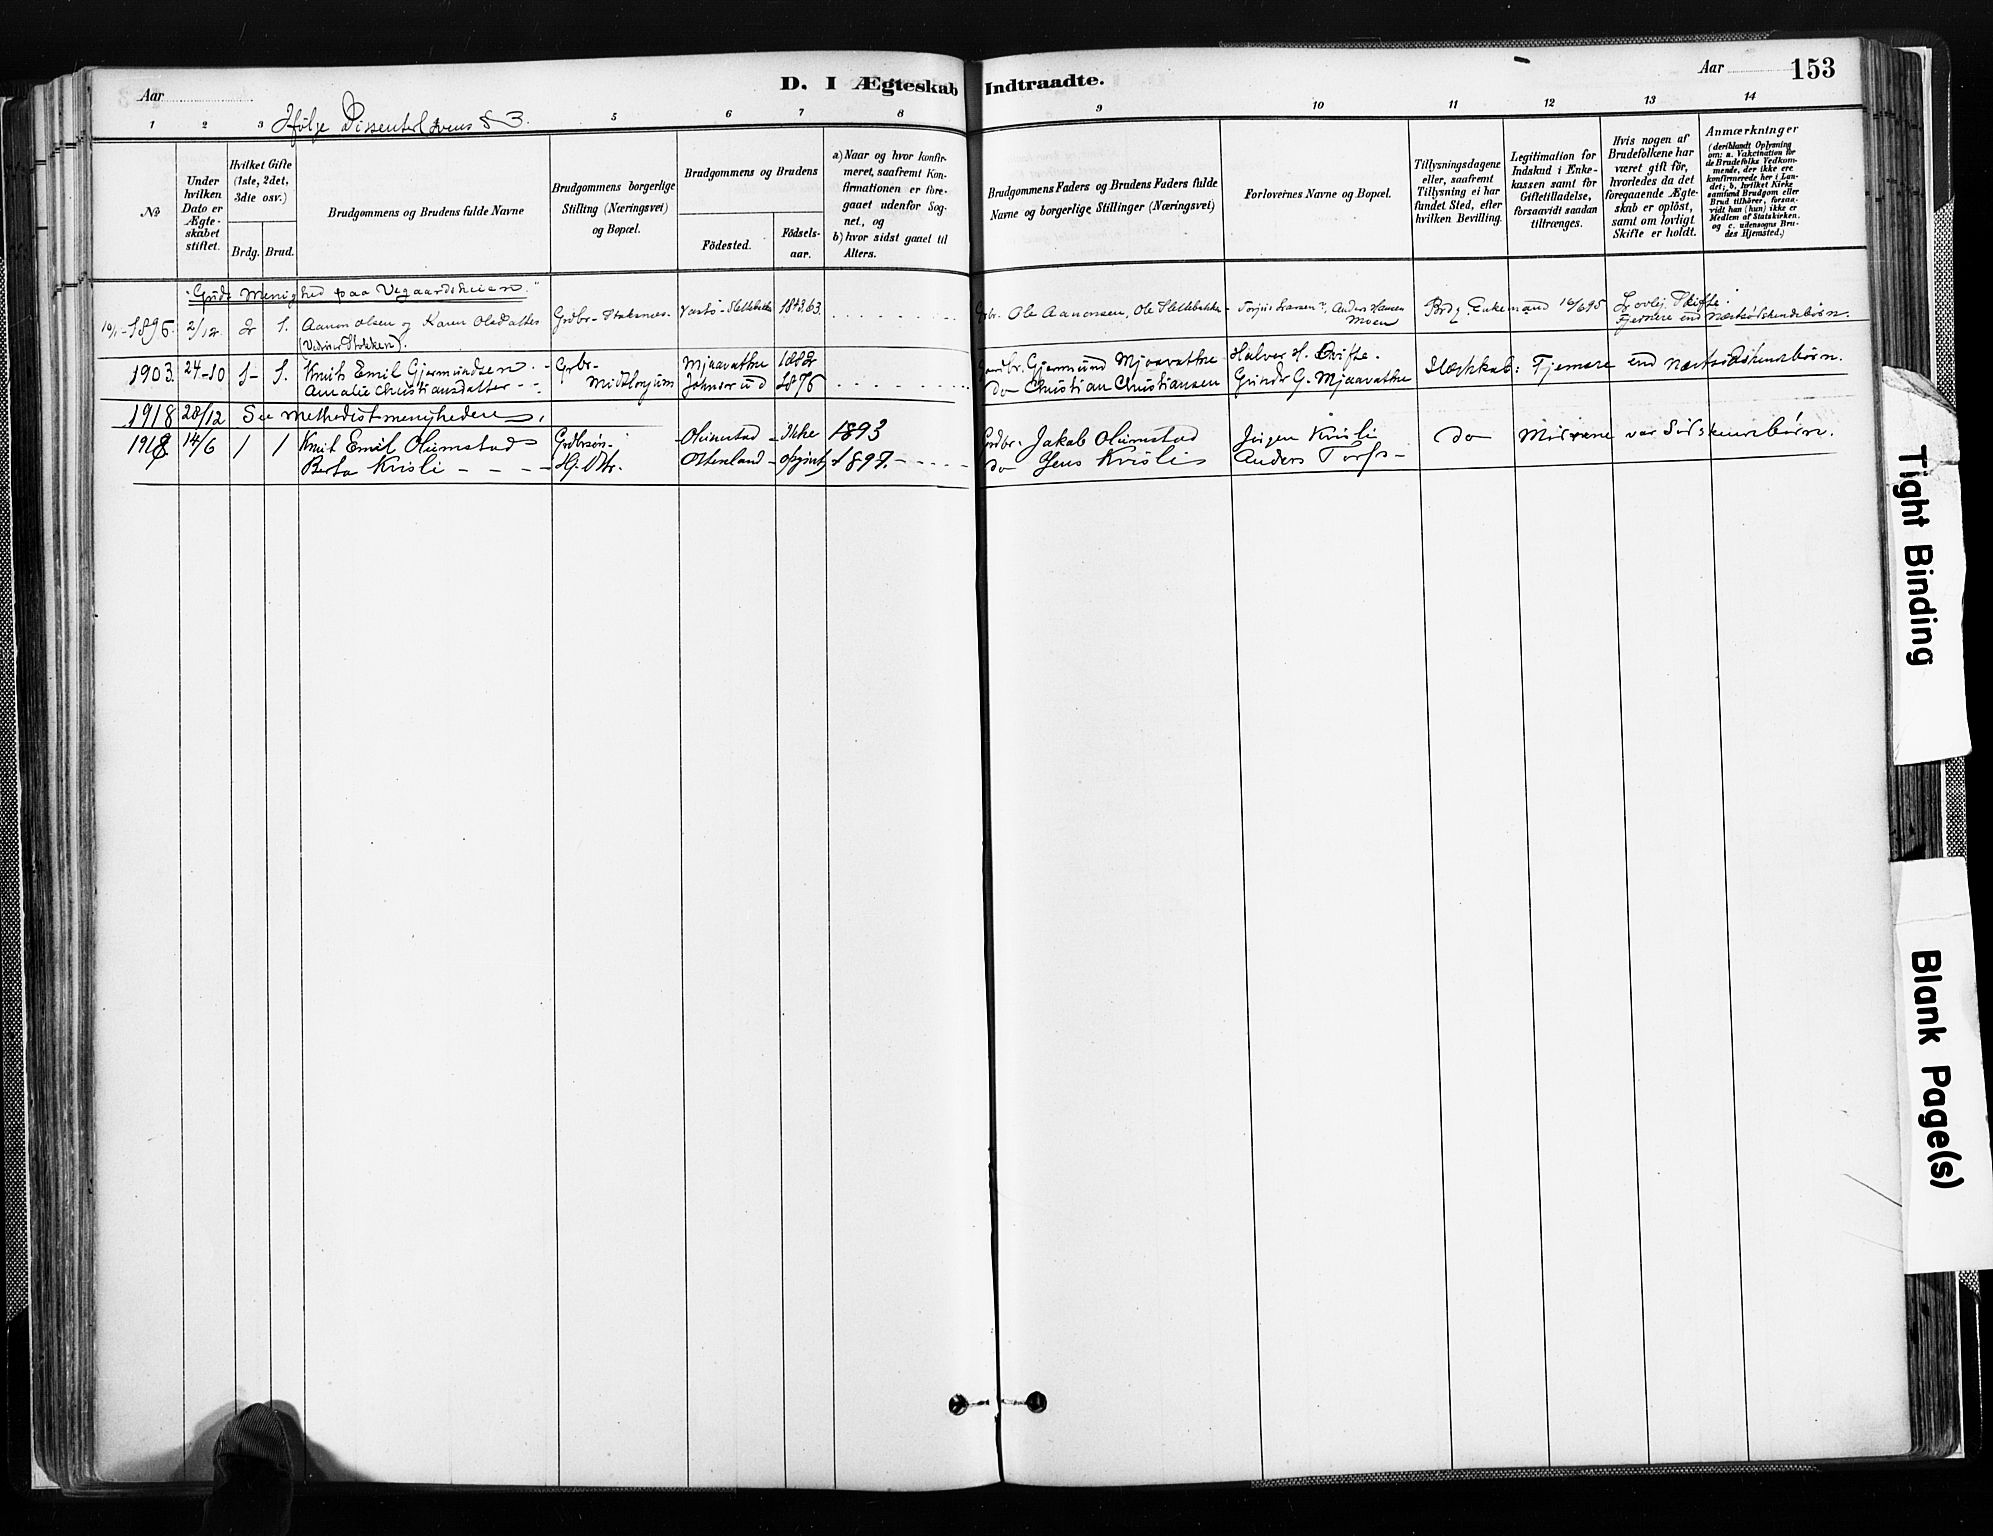 D. I Ægteskab Indtraadte.
Aar
Aar
153
Ifølge Dissenterlovens § 3.
1 2 3 5 6 7 8 9 10 11 12 13 14
No
Under hvilken Dato er Ægteskabet stiftet.
Hvilket Gifte (1ste, 2det, 3die osv.)
Brdg.
Brud.
Brudgommens og Brudens fulde Navne
Brudgommens borgerlige Stilling (Næringsvei) og Bopæl.
Brudgommens og Brudens
Födested.
Födsels-aar.
a) Naar og hvor konfirmeret, saafremt Konfirmationen er foregaaet udenfor Sognet, og
b) hvor sidst gaaet til Alters.
Brudgommens Faders og Brudens Faders fulde Navne og borgerlige Stillinger (Næringsvei)
Forlovernes Navne og Bopæl.
Tillysningsdagene eller, saafremt Tillysning ei har fundet Sted, efter hvilken Bevilling.
Legitimation for Indskud i Enkekassen samt for Giftetilladelse, forsaavidt saadan tiltrænges.
Hvis nogen af Brudefolkene har været gift för, hvorledes da det foregaaende Ægteskab er oplöst, samt om lovligt Skifte er holdt.
Anmærkninger
(deriblandt Oplysning om: a. Vakcination for de Brudefolks Vedkommende, der ikke ere konfirmerede her i Landet; b. hvilket Kirkesamfund Brudgom eller Brud tilhörer, forsaavidt han (hun) ikke er Medlem af Statskirken, og c. udensogns Brudes Hjemsted.)
"Guds Menighed paa Vegaardsheien"
1896. 2/12 2 1. Aanon Olsen og Karen Olsdatter Grdbr. 1843.63. Grdbr. Ole Aanonsen, Ole Sletebakke Anders Hansen Moen Brdg. Enkemand 16/6 95 Lovlig Skifte.
Fjernere end Næstsødskendebørn.
1903. 24-10 1- 1. Knut Emil Gjermundsen Grbr. Mjaavathne 1882 Gjermund Mjaavathne Halvor H.
Amalie Christiansdatter 1876 do Christian Christiansen G. Mjaavathne Fjernere end Næstsødskendebørn.
1918 28/12 See Methodistmenigheden.
1918 14/6 1 1 Knut Emil Olimstad Grdbrsøn Olimstad Ikke 1893 Grdbr. Jakob Olimstad Jørgen Kvisli do var Sødskendebørn.
Berta Kvisli opgivet 1897. do Jens Kvisli Anders
Tight Binding
Blank Page(s)